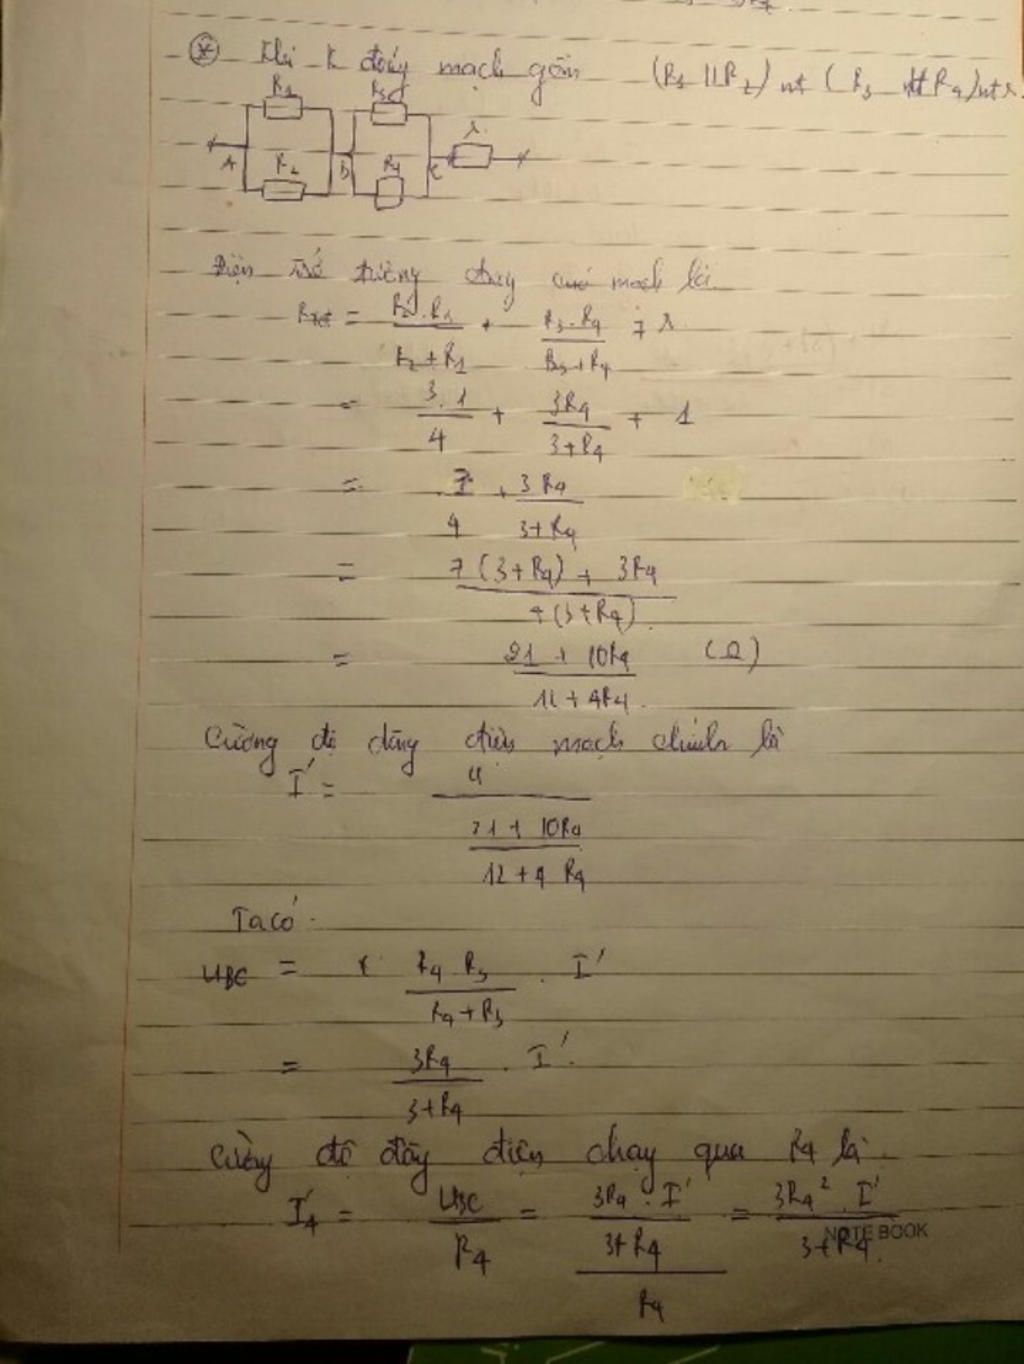 (*) Khi K đóng mạch gồm (R1 // R2) nt (R3 // R4) nt r.
R1 R3
A B C r
R2 R4
Điện trở tương đương của mạch là
Rtđ = R2.R1 / R2+R1 + R3.R4 / R3+R4 + r
= 3.1 / 4 + 3R4 / 3+R4 + 1
= 7 / 4 + 3R4 / 3+R4
= 7(3+R4) + 3R4 / 4(3+R4)
= 21 + 10R4 / 12 + 4R4 (Ω)
Cường độ dòng điện mạch chính là
I' = U / 21 + 10R4 / 12 + 4R4
Ta có
UBC = R4.R3 / R4+R3 . I'
= 3R4 / 3+R4 . I'
Cường độ dòng điện chạy qua R4 là
I'4 = UBC / R4 = 3R4 . I' / 3+R4 / R4 = 3R4² . I' / 3+R4
NOTE BOOK